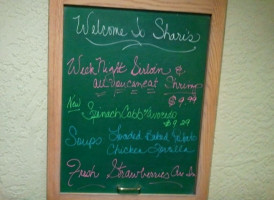 Welcome To Shari's
Week Night Sirloin &
all you can eat Shrimp
$9.99
New Spinach Cobb
$9.29
Soups Loaded Baked Potato
Chicken Tortilla
Fresh Strawberries Are In